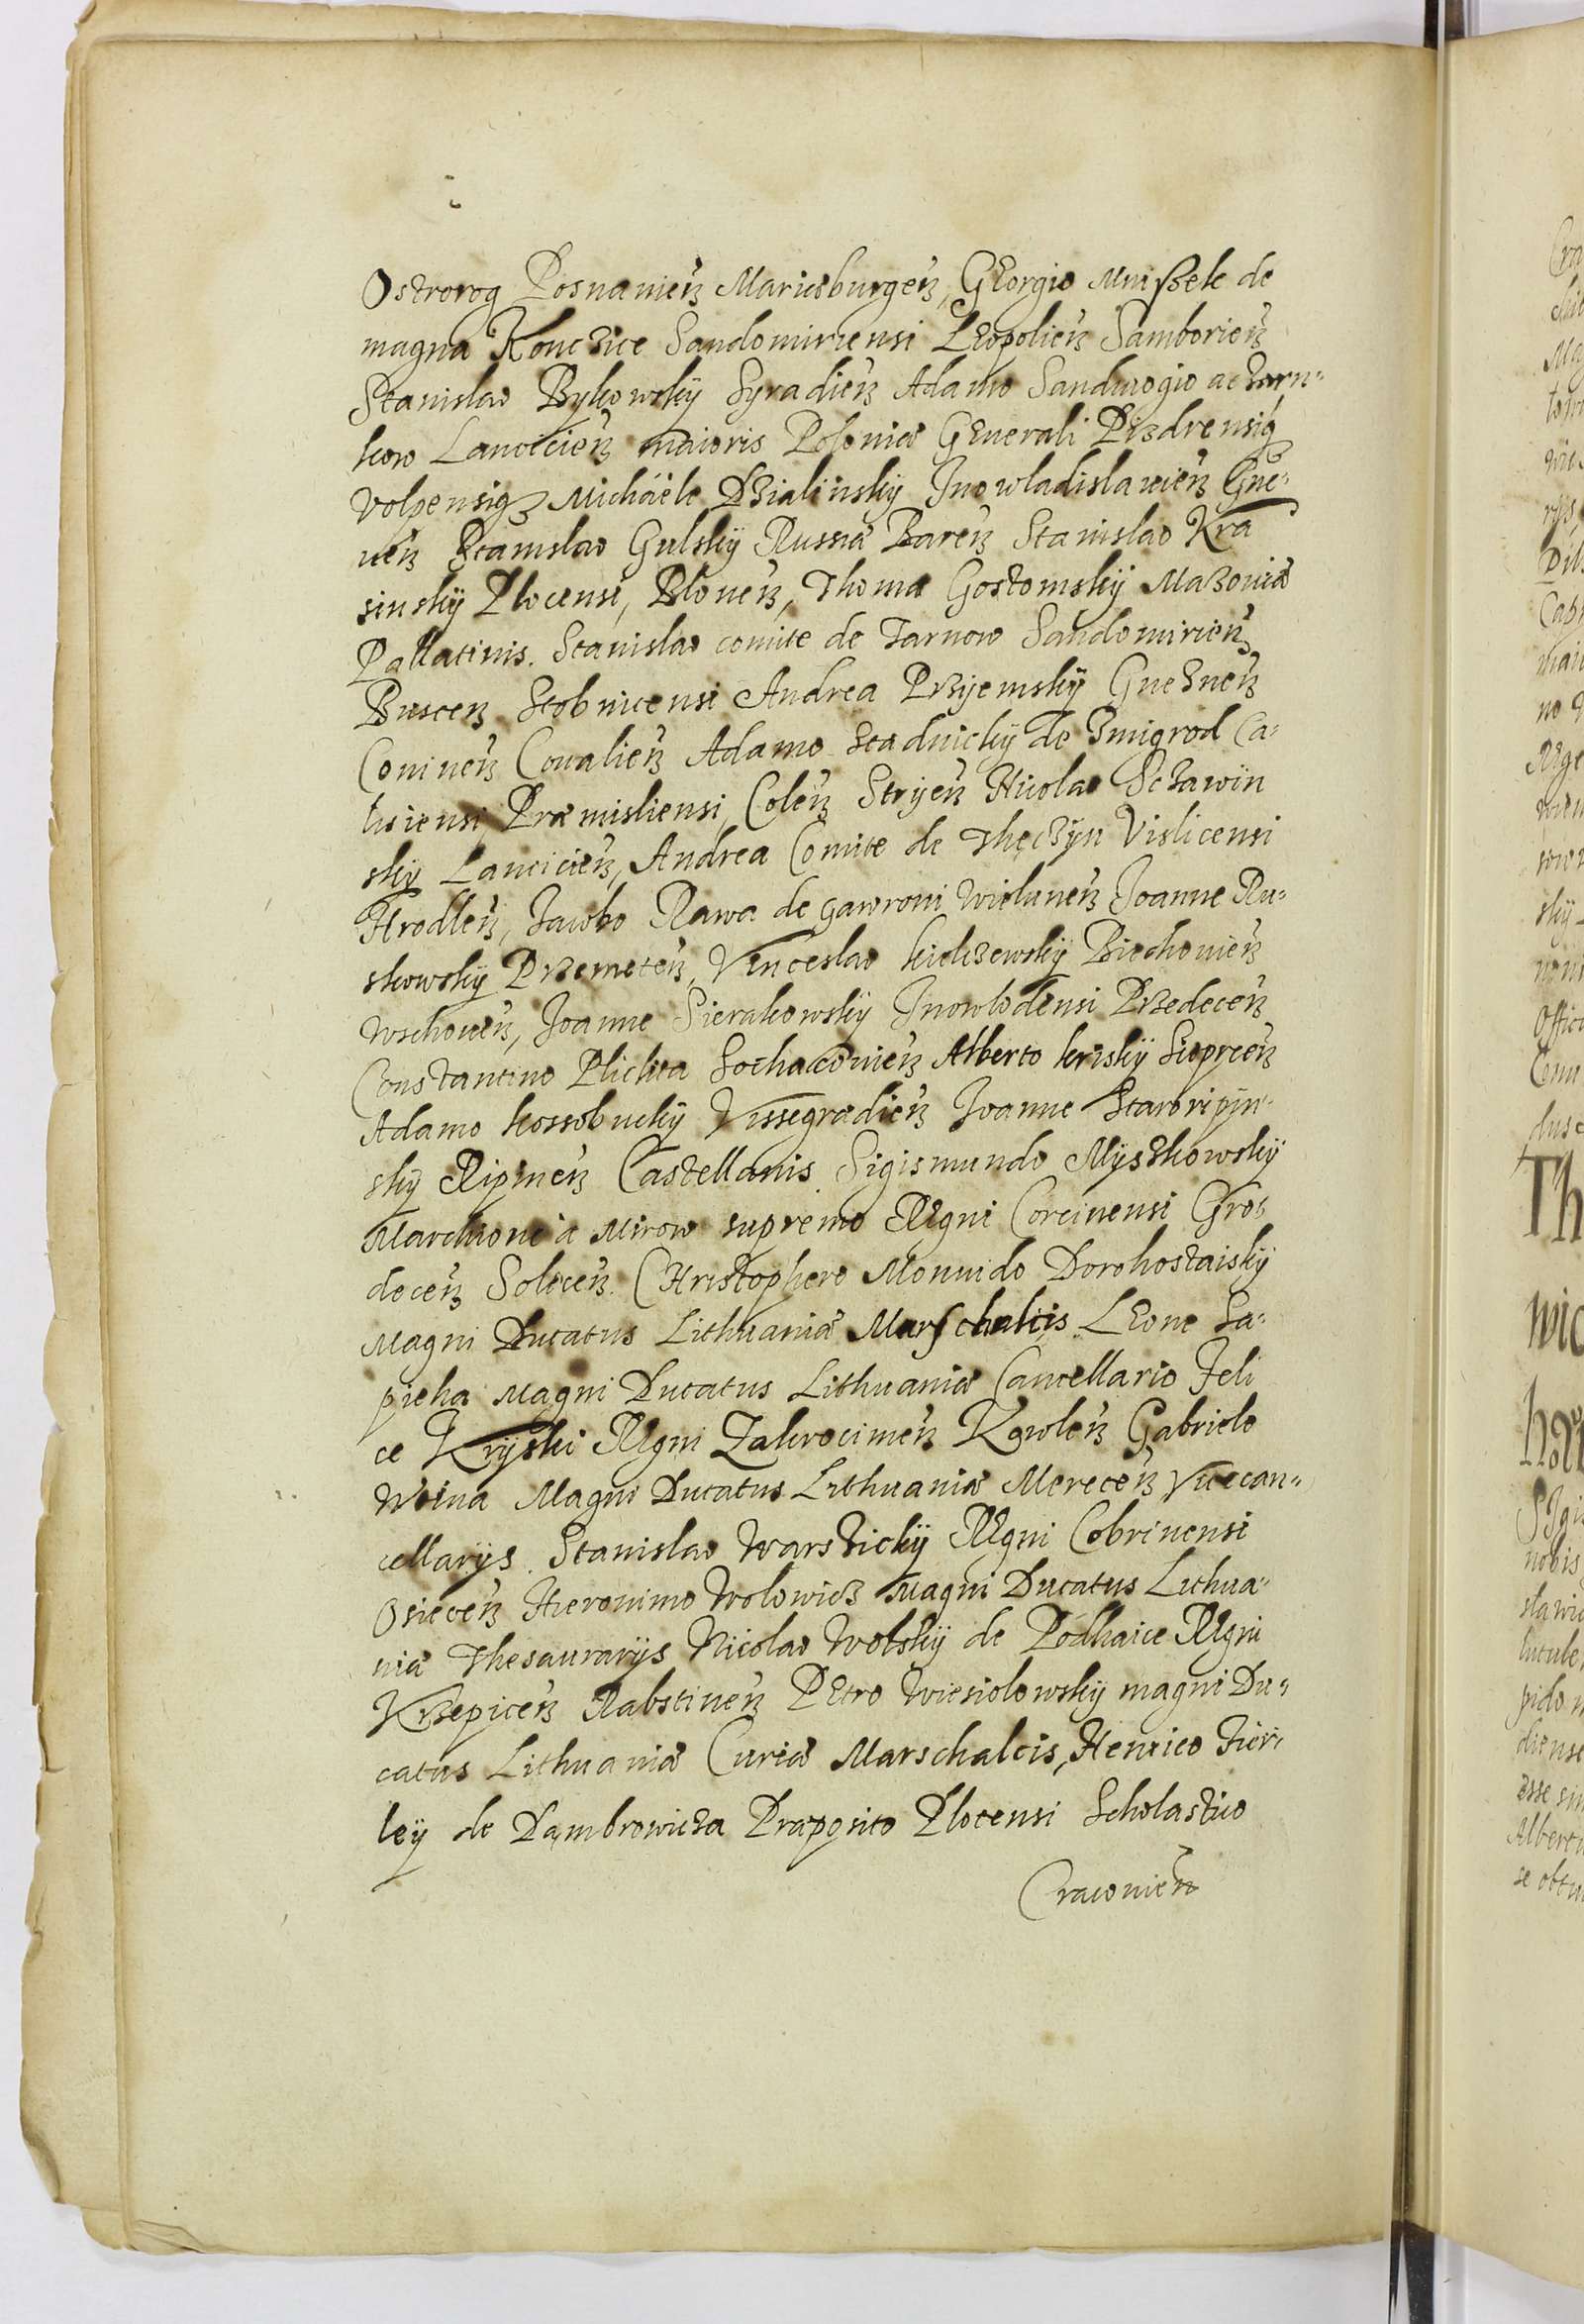 Ostrorog Posnanien̄ Marieburgen̄, GEorgio Mnißek de
magna Konczice Sandomiriensi LEopolien̄ Samborien̄
Stanislao Bykowskÿ Syradien̄ Adamo Sandivogio a Czarn-
kow Lancicien̄ maioris Poloniæ GEnerali Pizdrensiq3
Volpensiq3 Michäele Dzialinskÿ Inowladislavien̄ Gne-
ven̄ Stanislao Gulskÿ Russiæ Baren̄ Stanislao Kra
sinskÿ Plocensi, Plonen̄, Thoma Gostomskÿ Mazoviæ
Pallatinis. Stanislao comite de Tarnow Sandomirien̄
Buscen̄ Stobnicensi Andrea Przÿemskÿ Gneznen̄
Coninen̄ Covalien̄ Adamo Stadnickÿ de Zmigrod Ca-
lisiensi Præmisliensi, Colen̄ Strijen̄ Nicolao Sczawin
skÿ Lancicien̄, Andrea Comite de Theczÿn Vislicensi
Hrodlen̄, Iacobo Rawa de Gawroni Wielunen̄ Joanne Ru-
skowskÿ Przemeten̄, Venceslao kielczewskÿ Biechovien̄
Wschoven̄, Joanne Sierakowskÿ Inowlodensi Przedecen̄
Constantino Plichta Sochaczovien̄ Alberto kriskÿ Sieprcen̄
Adamo kossobuckÿ Vissegradien̄ Joanne Stawripin-
skÿ Ripinen̄ Castellanis. Sigismundo Mÿszkowskÿ
Marchione a Mirow supremo REgni Corcinensi Gro-
decen̄ Solecen̄. CHristophero Monuido Dorohostaiskÿ
Magni Ducatus Lithuaniæ Marschalcis. LEone Sa-
pieha Magni Ducatus Lithuaniæ Cancellario Feli
ce Krÿski REgni Zakrocimen̄ Kowlen̄ Gabriele
Woina Magni Ducatus Lithuaniæ Merecen̄ Vicecan-
cellarÿs. Stanislao Warszickÿ REgni Cobrinensi
Osiecen̄ Hieronimo Wolowicz Magni Ducatus Lithua-
niæ Thesaurarÿs Nicolao Wolskÿ de Podhaice REgni
Krzepicen̄ Rabstinen̄ PEtro Wiesiolowskÿ magni Du-
catus Lithuaniæ Curiæ Marschalcis, Henrico Fier-
leÿ de Dambrowicza Præposito Plocensi Scholastico
Cracovien̄